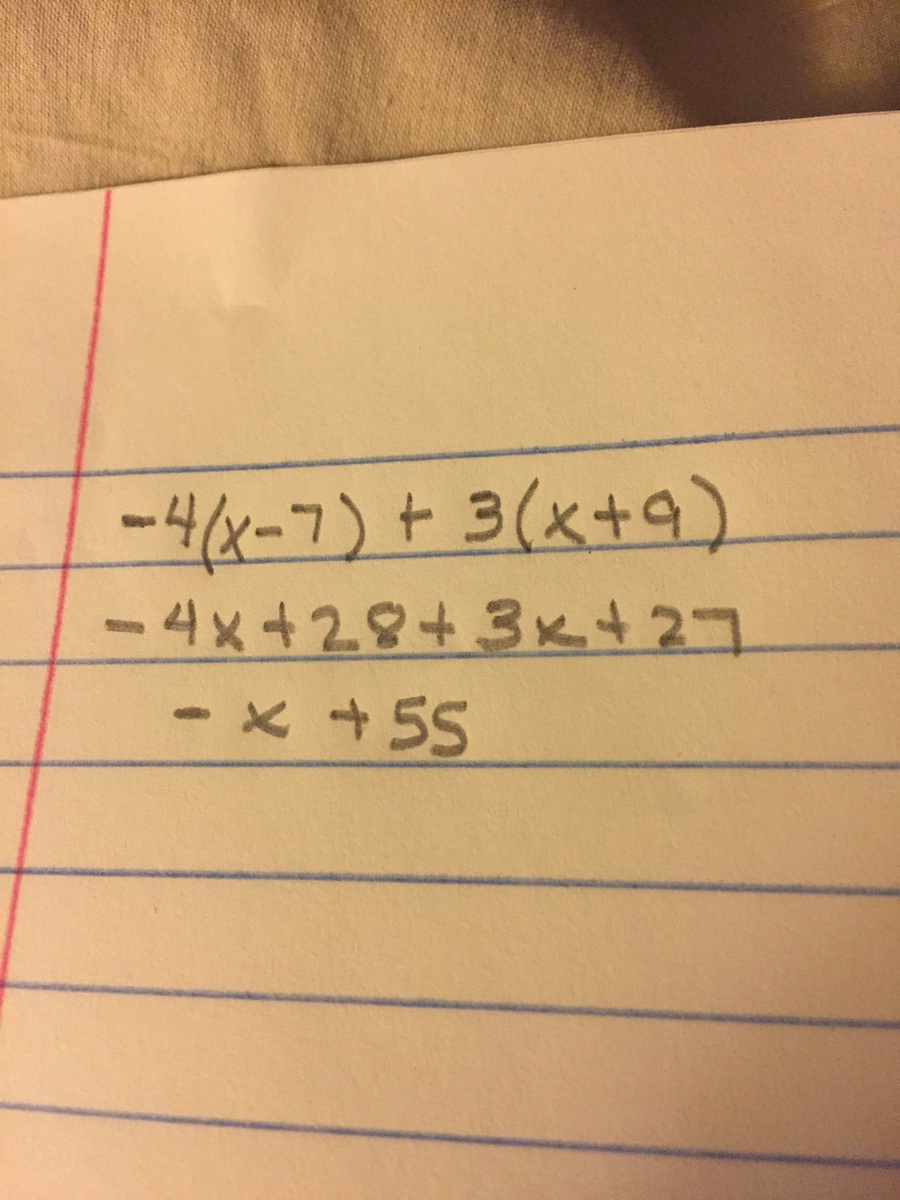 -4(x-7) + 3(x+9)
-4x+28+3x+27
-x +55